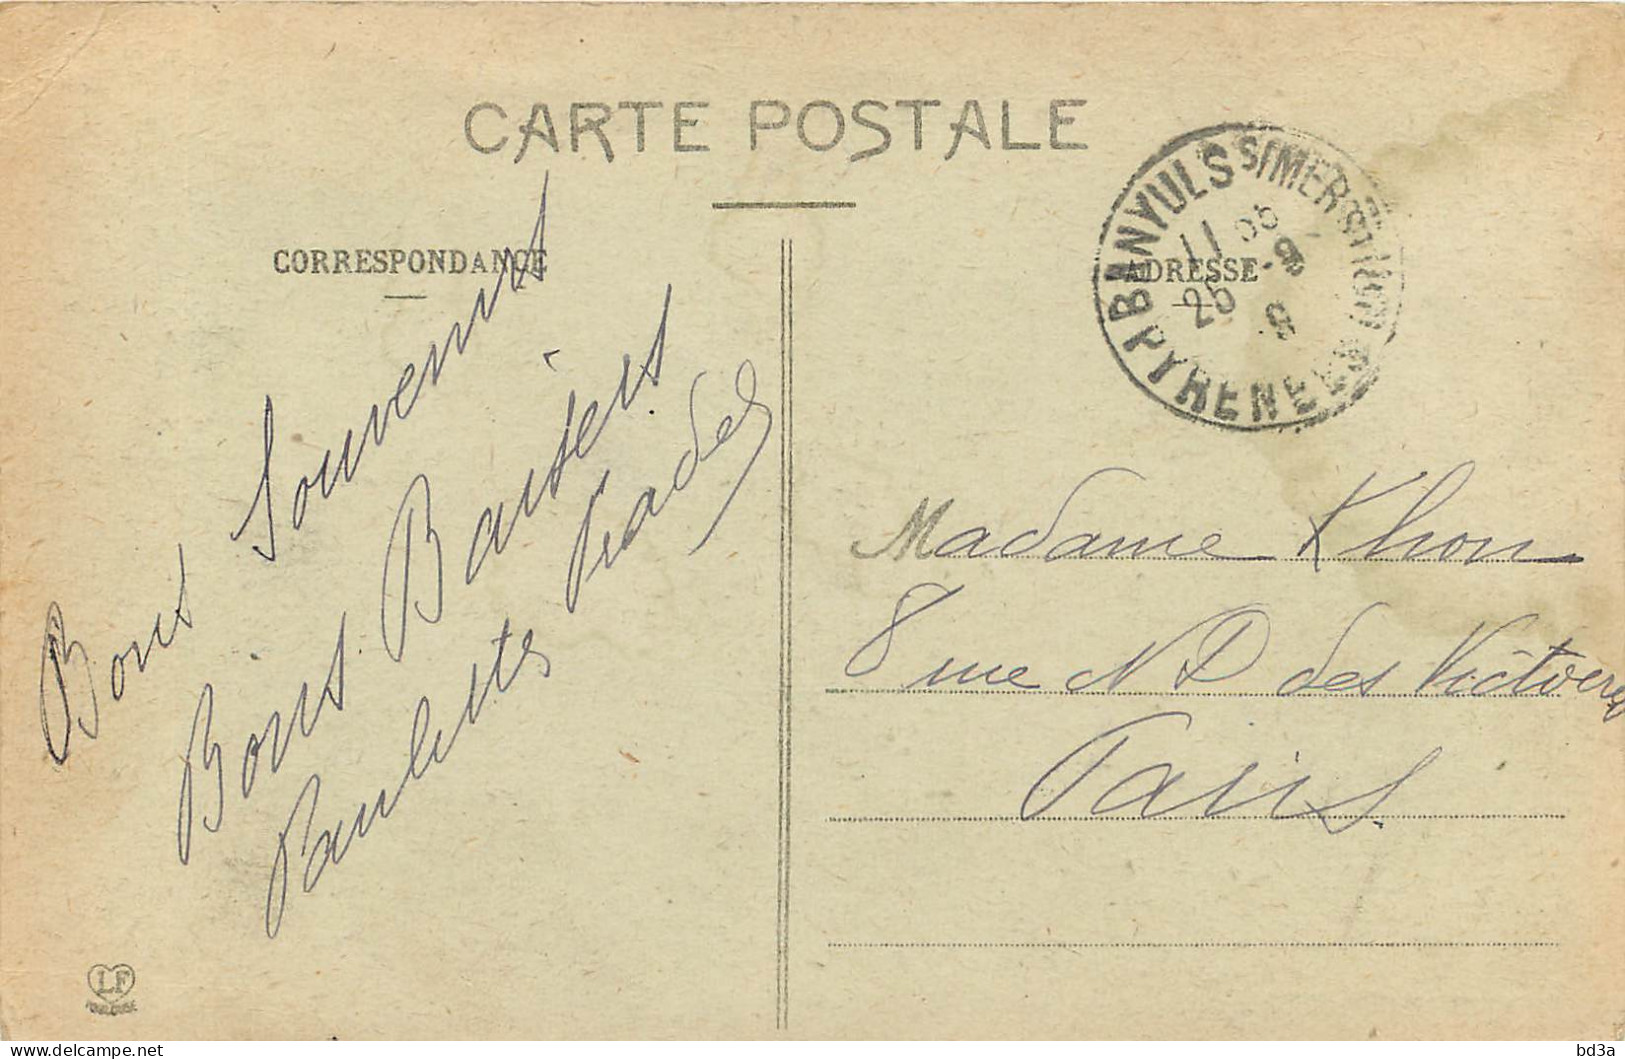 CARTE POSTALE
CORRESPONDANCE
ADRESSE
BANYULS S/MER STATION
PYRENEES
11 35
25 - 9
Bons Souvenirs
Bons Baisers
Paulette Prades
Madame Khon
8 rue N D des Victoires
Paris
LF
TOULOUSE
delcampe.net
bd3a